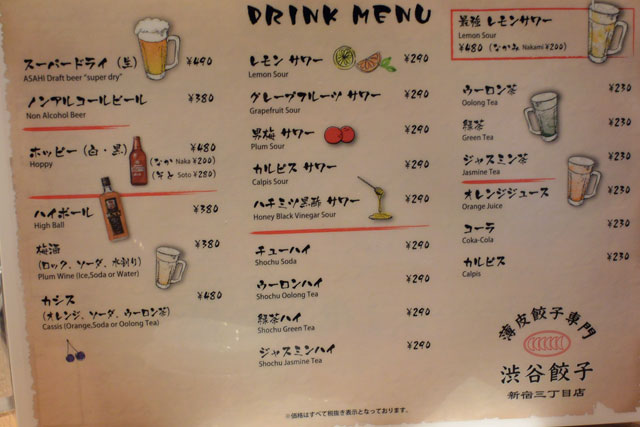 DRINK MENU
スーパードライ（生） ¥490
ASAHI Draft beer "super dry"
ノンアルコールビール ¥380
Non Alcohol Beer
ホッピー（白・黒） ¥480
Hoppy
（なか Naka ¥200）
（そと Soto ¥280）
ハイボール ¥380
High Ball
梅酒 ¥380
（ロック、ソーダ、水割り）
Plum Wine (Ice,Soda or Water)
カシス ¥480
（オレンジ、ソーダ、ウーロン茶）
Cassis (Orange,Soda or Oolong Tea)
レモン サワー ¥290
Lemon Sour
グレープフルーツ サワー ¥290
Grapefruit Sour
男梅 サワー ¥290
Plum Sour
カルピス サワー ¥290
Calpis Sour
ハチミツ黒酢 サワー ¥290
Honey Black Vinegar Sour
チューハイ ¥290
Shochu Soda
ウーロンハイ ¥290
Shochu Oolong Tea
緑茶ハイ ¥290
Shochu Green Tea
ジャスミンハイ ¥290
Shochu Jasmine Tea
最強 レモンサワー
Lemon Sour
¥480（なかみ Nakami ¥200）
ウーロン茶 ¥230
Oolong Tea
緑茶 ¥230
Green Tea
ジャスミン茶 ¥230
Jasmine Tea
オレンジジュース ¥230
Orange Juice
コーラ ¥230
Coka-Cola
カルピス ¥230
Calpis
薄皮餃子専門
渋谷餃子
新宿三丁目店
※価格はすべて税抜き表示となっております。